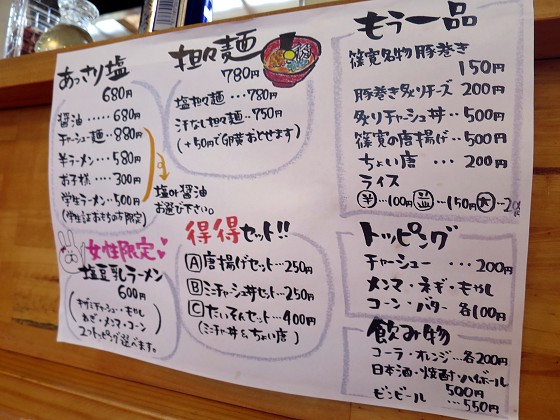 あっさり塩
680円
醤油‥‥‥680円
チャーシュー麺‥880円
半ラーメン‥‥580円
お子様‥‥300円
学生ラーメン‥500円
塩or醤油
お選び下さい。
担々麺
780円
塩担々麺‥‥780円
汁なし担々麺‥750円
(+50円で卵黄おとせます)
女性限定
塩豆乳ラーメン
600円
ネギ・メンマ・コーン
2つトッピング選べます。
得得セット!!
Ⓐ唐揚げセット‥250円
Ⓑミニチャーシュ丼セット‥250円
Ⓒたいぞんセット‥400円
(ミニチャ丼&ちょい唐)
もう一品
篠寛名物豚巻き
150円
豚巻き炙りチーズ‥200円
炙りチャーシュ丼‥500円
篠寛の唐揚げ‥500円
ちょい唐‥‥200円
ライス
半‥100円 並‥150円 大‥
トッピング
チャーシュー‥‥200円
メンマ・ネギ・もやし
コーン・バター‥各100円
飲み物
コーラ・オレンジ‥各200円
日本酒・焼酎・ハイボール
500円
ビンビール‥‥550円